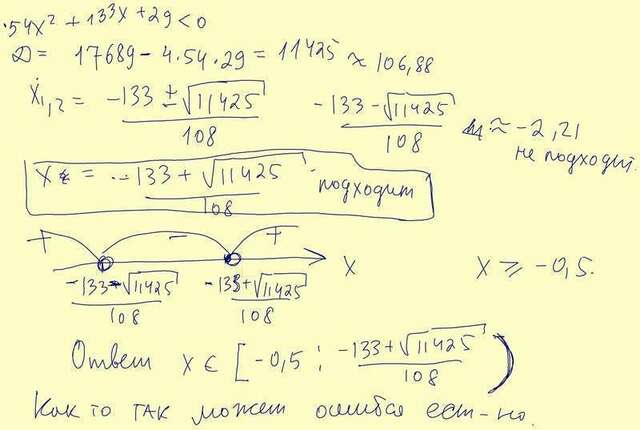 54x² + 133x + 29 < 0
D = 17689 - 4.54.29 = 11425 ≈ 106,88
x₁,₂ = -133 ± √11425 / 108    -133 - √11425 / 108 ≈ -2,21
не подходит.
x = -133 + √11425 / 108 - подходит
+ - + x    x ⩾ -0,5.
-133 - √11425 / 108    -133 + √11425 / 108
Ответ x ∈ [-0,5 ; -133 + √11425 / 108)
Как то так может ошибся ест-но.